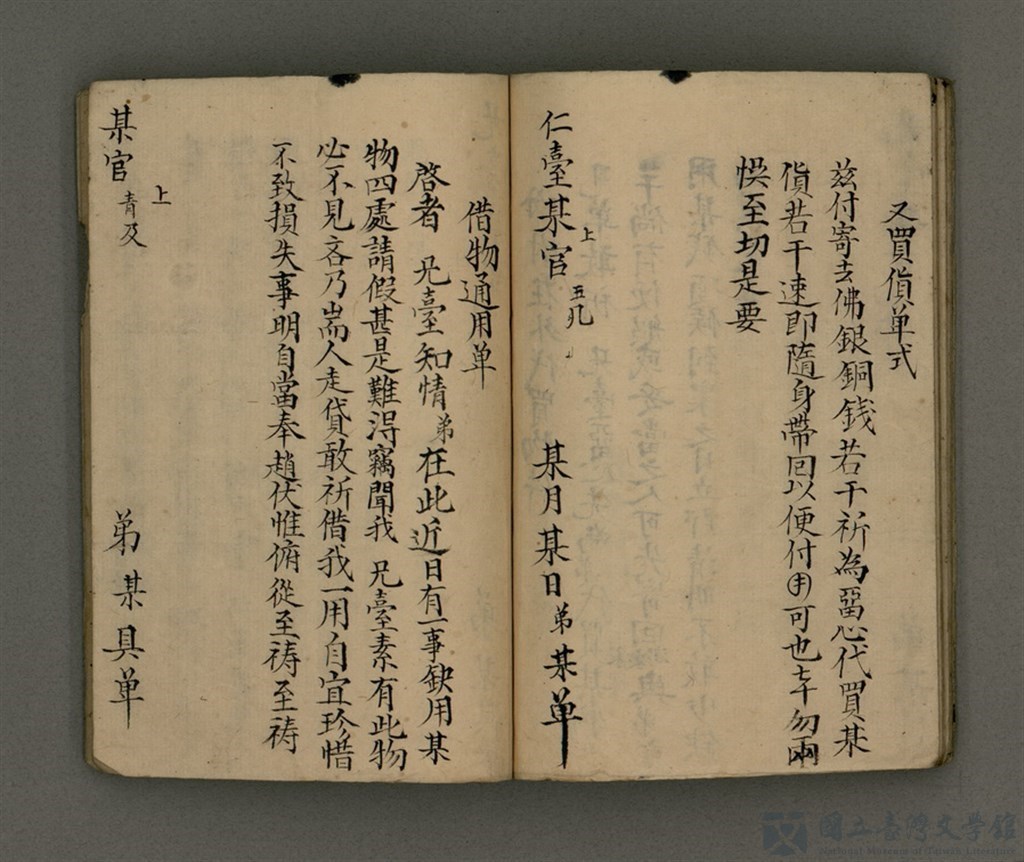 又買貨单式
茲付寄去佛銀銅錢若干祈為留心代買某
貨若干速即隨身帶回以便付用可也幸勿兩
悞至切是要
仁臺某官 上 五几
某月某日弟某单
借物通用单
啓者 兄臺知情弟在此近日有一事缺用某
物四處請假甚是難得竊聞我 兄臺素有此物
必不見吝乃耑人走貸敢祈借我一用自宜珍惜
不致損失事明自當奉趙伏惟俯從至祷至祷
某官 上 青及
弟某具单
國立臺灣文學館
National Museum of Taiwan Literature